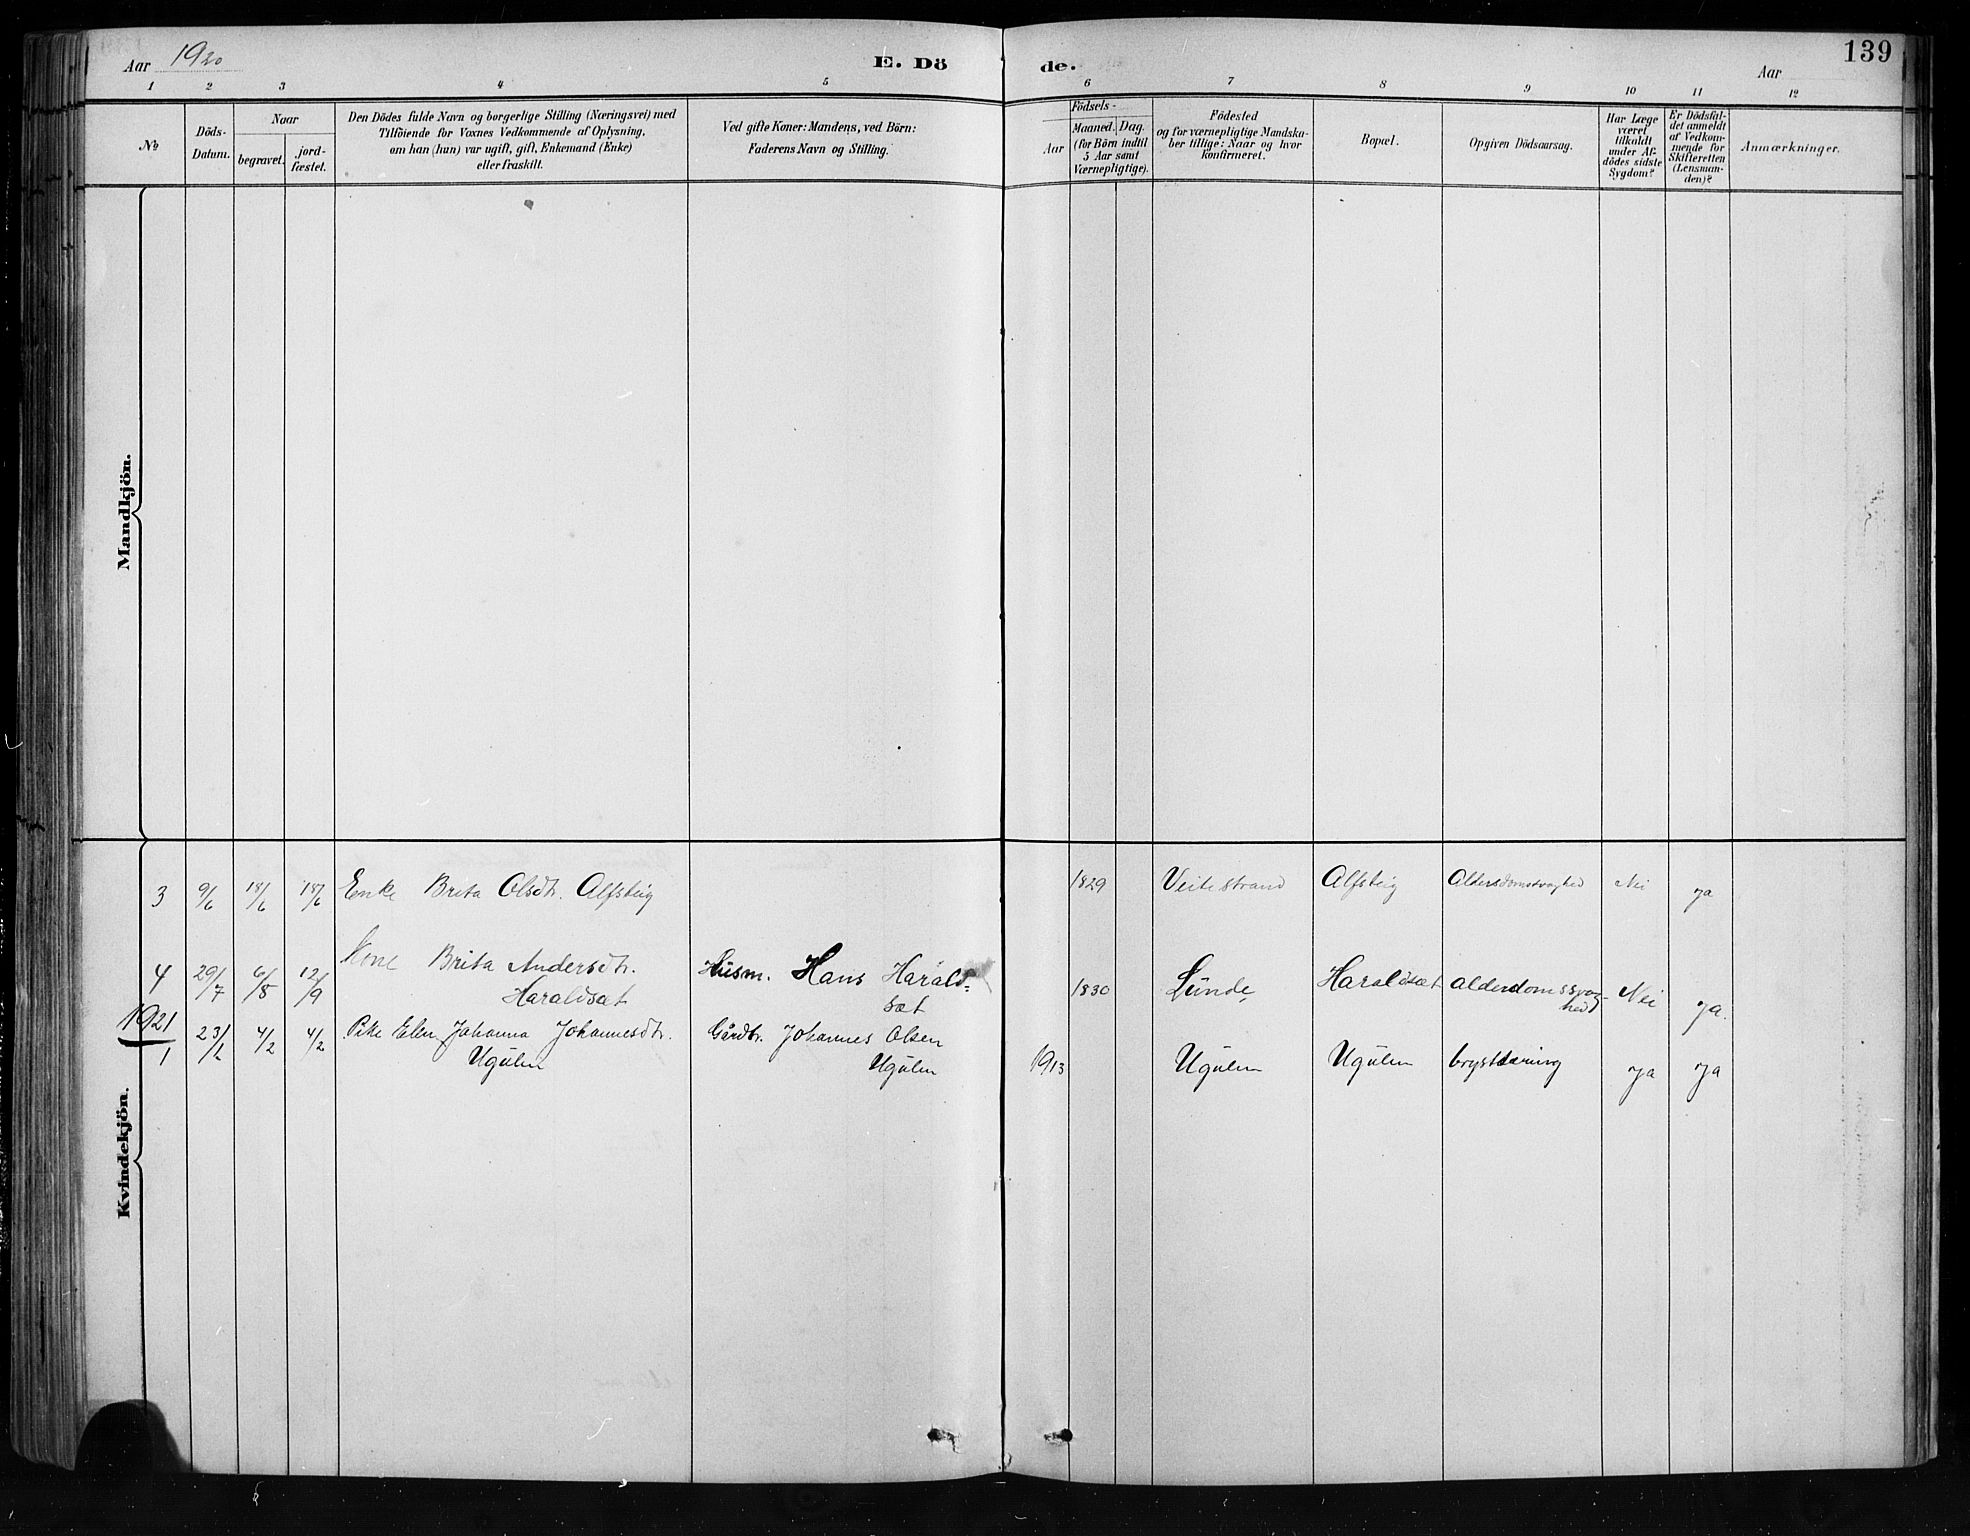 Aar 1920
E. Dö
de.
Aar
139
1 2 3 4 5 6 7 8 9 10 11 12
No
Döds-
Datum.
Naar
begravet.
jord-
fæstet.
Den Dödes fulde Navn og borgerlige Stilling (Næringsvei) med
Tilföiende for Voxnes Vedkommende af Oplysning,
om han (hun) var ugift, gift, Enkemand (Enke)
eller fraskilt.
Ved gifte Koner: Mandens, ved Börn:
Faderens Navn og Stilling.
Födsels-
Aar
Maaned.
Dag.
(for Börn indtil
5 Aar samt
Værnepligtige).
Födested
og for værnepligtige Mandska-
ber tillige: Naar og hvor
konfirmeret.
Bopæl.
Opgiven Dödsaarsag.
Har Læge
været
tilkaldt
under Af-
dödes sidste
Sygdom?
Er Dödsfal-
det anmeldt
af Vedkom-
mende for
Skifteretten
(Lensman-
den)?
Anmærkninger.
Mandkjön.
Kvindekjön.
3 9/6 18/6 18/6 Enke Brita Olsdtr. Alfsteig 1829 Veitestrand Alfsteig Aldersdomsvaghed Nei ja
4 29/7 6/8 12/9 Kone Brita Andersdtr. Husm. Hans Harald= 1830 Lunde Haraldsæt alderdomssvag- Nei ja.
Haraldsæt sæt hed
1921
1 23/1 4/2 4/2 Pike Elen Johanna Johannesdtr. Gårdbr. Johannes Olsen
Ugulen Ugulen 1913 Ugulen Ugulen brysttæring ja ja